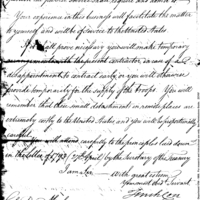 Your experience in this business will facilitate the matter
to yourself and will be of service to the United States
If it shall prove necessary you will make temporary
with the present contractor, in case of
disappointment to contract early, or you will otherwise
provide temporarily for the supply of the troops You will
remember that these small detachments in remote places are
extremely costly to the United States and you will be
careful
You will attend carefully to the principles laid down
in the letter of 1793 by the Secretary of the Treasury
I am Sir
With great esteem
Your most obdt Servant